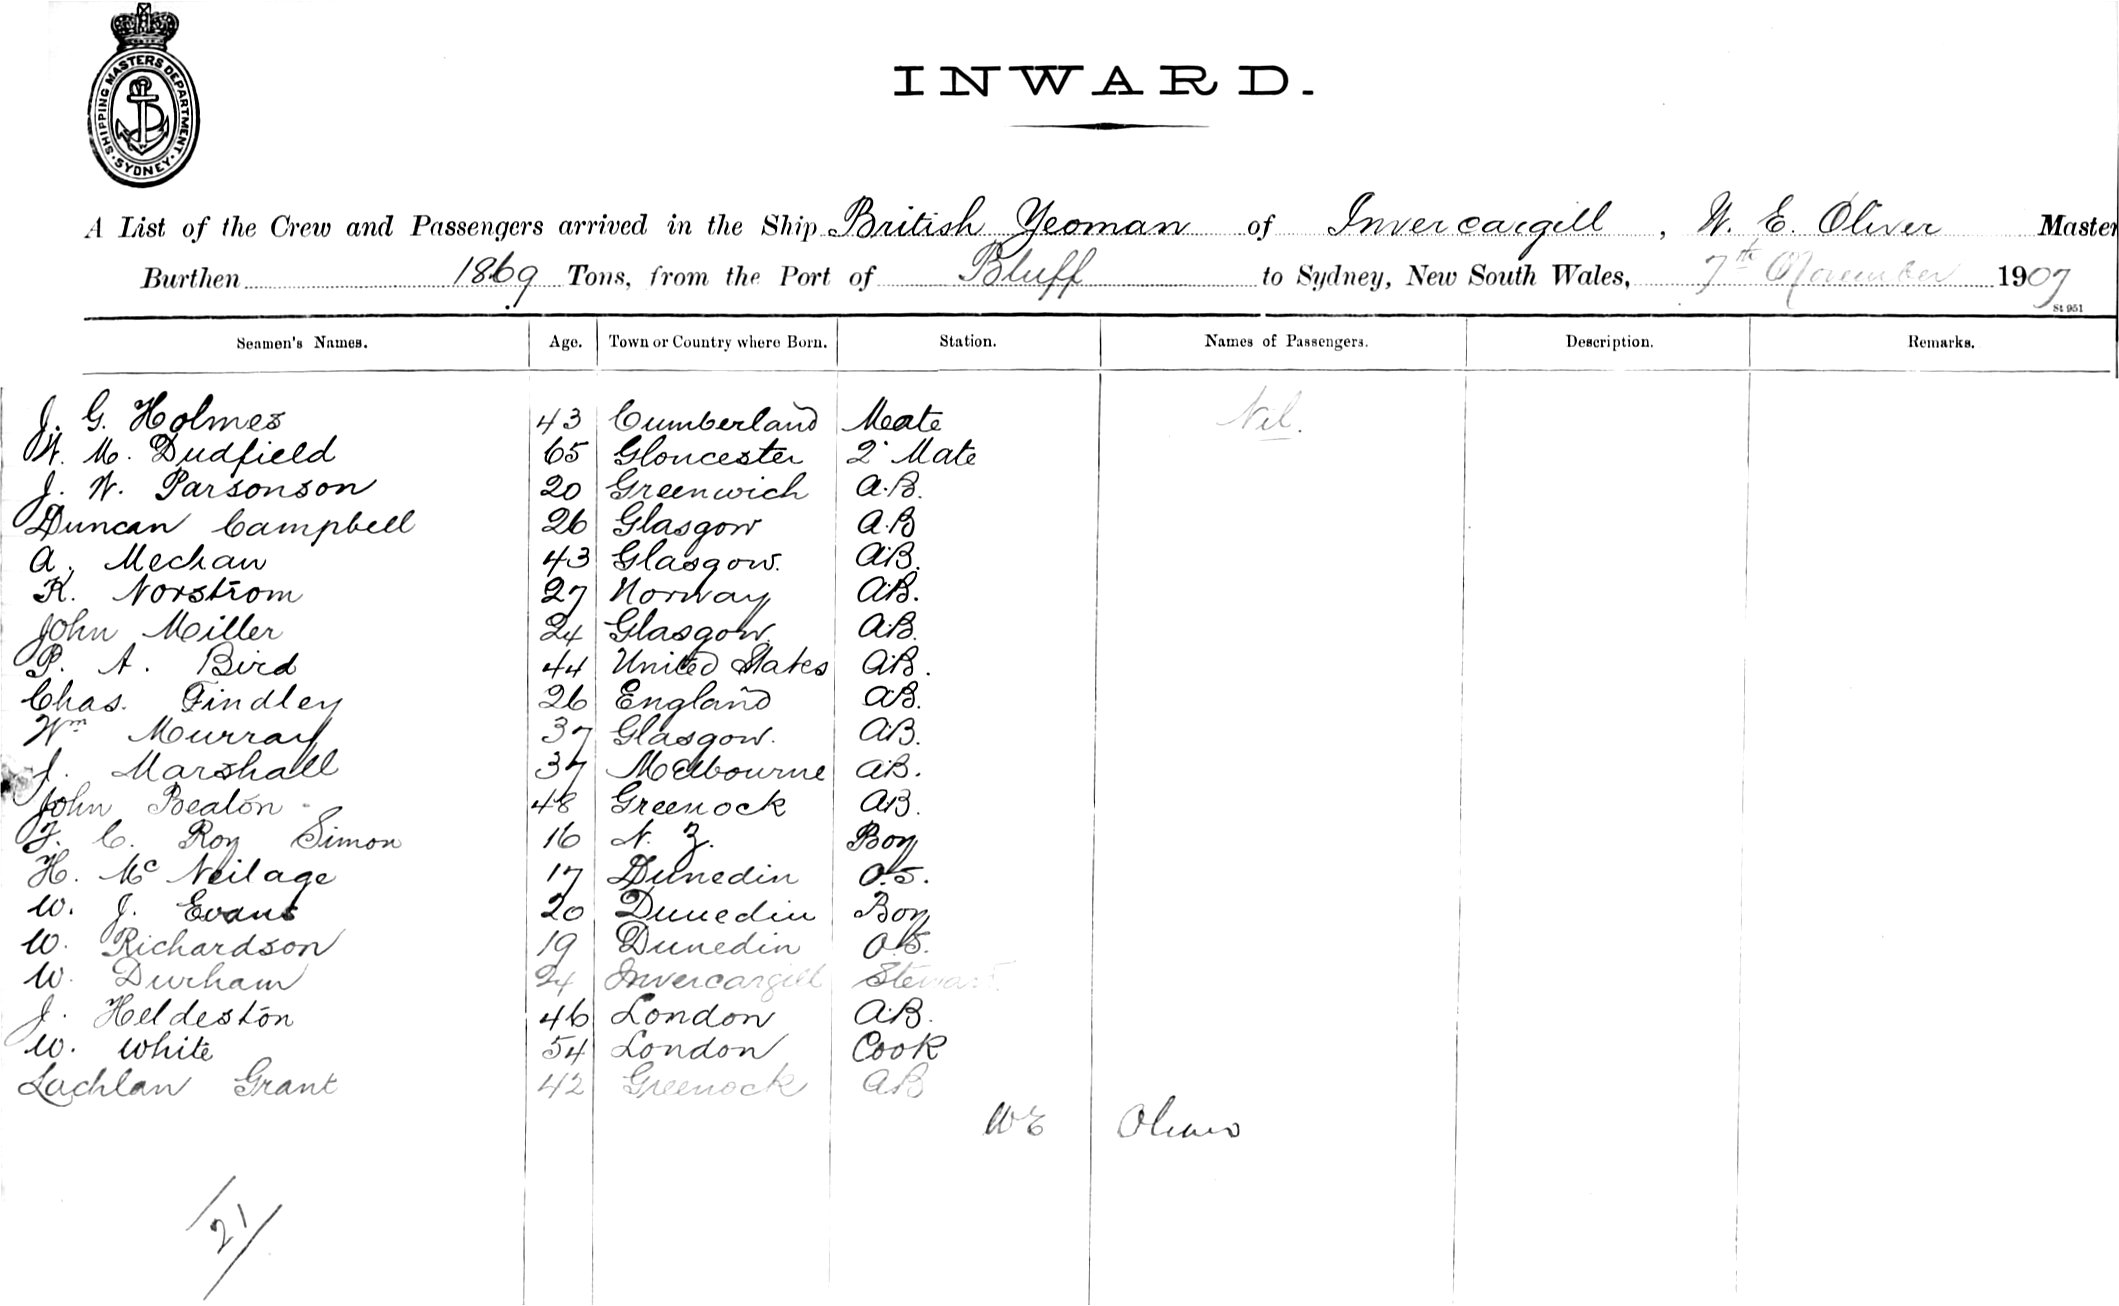 SHIPPING MASTERS DEPARTMENT
SYDNEY
INWARD.
A List of the Crew and Passengers arrived in the Ship British Yeoman of Invercargill, W. E. Oliver Master
Burthen 1869 Tons, from the Port of Bluff to Sydney, New South Wales, 7th November 1907
St 951
Seamen's Names. Age. Town or Country where Born. Station. Names of Passengers. Description. Remarks.
J. G. Holmes 43 Cumberland Mate Nil.
W. M. Dudfield 65 Gloucester 2 Mate
J. W. Parsonson 20 Greenwich A.B.
Duncan Campbell 26 Glasgow A.B
A. Mechan 43 Glasgow. A.B.
K. Norstrom 27 Norway A.B.
John Miller 24 Glasgow. A.B.
P. A. Bird 44 United States A.B.
Chas. Findley 26 England A.B.
Wm Murray 37 Glasgow. A.B.
J. Marshall 37 Melbourne A.B.
John Beaton 48 Greenock A.B.
F. C. Roy Simon 16 N. Z. Boy
H. Mc Neilage 17 Dunedin O.S.
W. J. Evans 20 Dunedin Boy
W. Richardson 19 Dunedin O.S.
W. Durham 24 Invercargill Steward
J. Heldeston 46 London A.B.
W. White 54 London Cook
Lachlan Grant 42 Greenock AB
WE Oliver
/21/